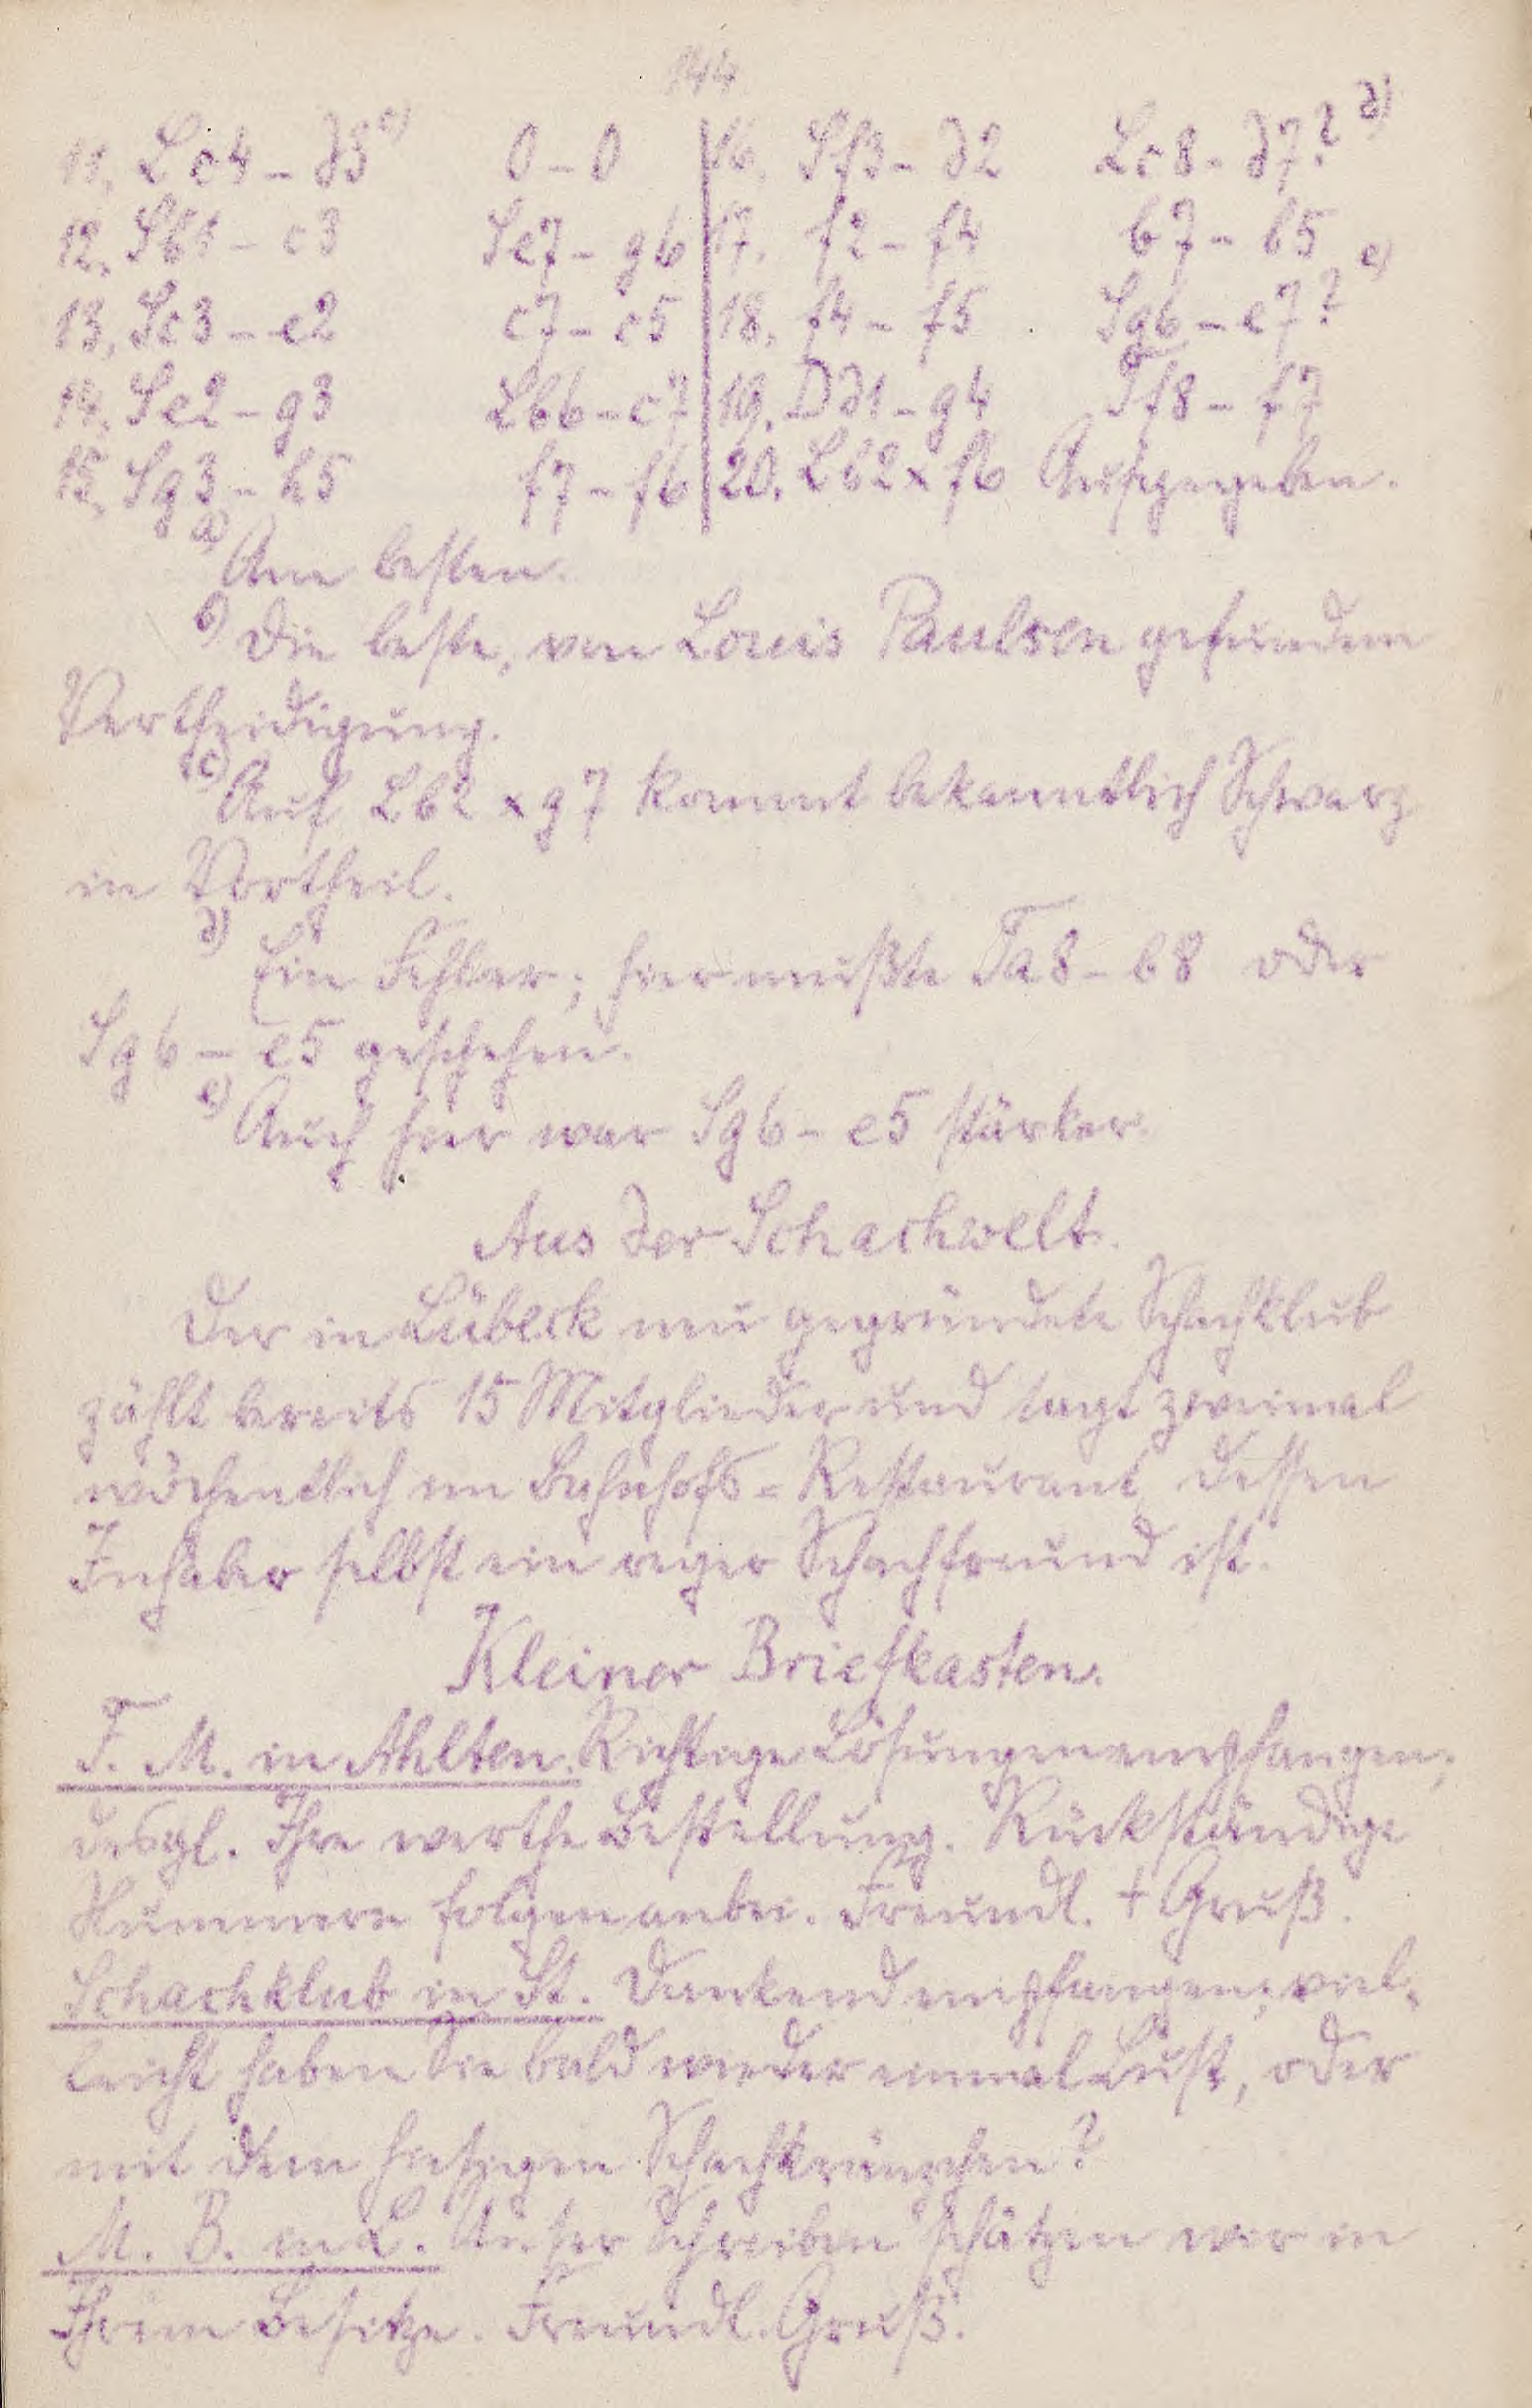 144
11. Lc4 – d5 c) 0 – 0 16. Sf3 – d2 Lc8 – d7? d)
12. Sb1 – c3 Se7 – g6 17. f2 – f4 b7 – b5
13. Sc3 – e2 c7 – c5 18. f4 – f5 Sg6 – e7? e)
14. Se2 – g3 Lb6 – c7 19. Dd1 – g4 Tf8 – f7
15. Sg3 – h5 f7 – f6 20. Lb2 x f6 Aufgegeben.
a) Am besten.
b) Die beste, von Louis Paulsen gefundene
Vertheidigung.
c) Auf Lb2 x g7 kommt bekanntlich Schwarz
in Vortheil.
d) Ein Fehler; hier mußte Ta8 – b8 oder
Sg6 – e5 geschehen.
e) Auch hier war Sg6 – e5 stärker.
Aus der Schachwelt.
Der in Lübeck neu gegründete Schachklub
zählt bereits 15 Mitglieder und tagt zweimal
wöchentlich im Bahnhofs-Restaurant, dessen
Inhaber selbst ein reger Schachfreund ist.
Kleiner Briefkasten.
F. M. in Ahlten. Richtige Lösungen empfangen;
desgl. Ihre werthe Bestellung. Rückständige
Nummern folgen anbei. Freundl. + Gruß.
Schachklub in St. Dankend empfangen; viel-
leicht haben Sie bald wieder einmal Lust, oder
mit dem hiesigen Schachkränzchen?
M. B. in L. Unser Schreiben schätzen wir in
Ihrem Besitze. Freundl. Gruß.